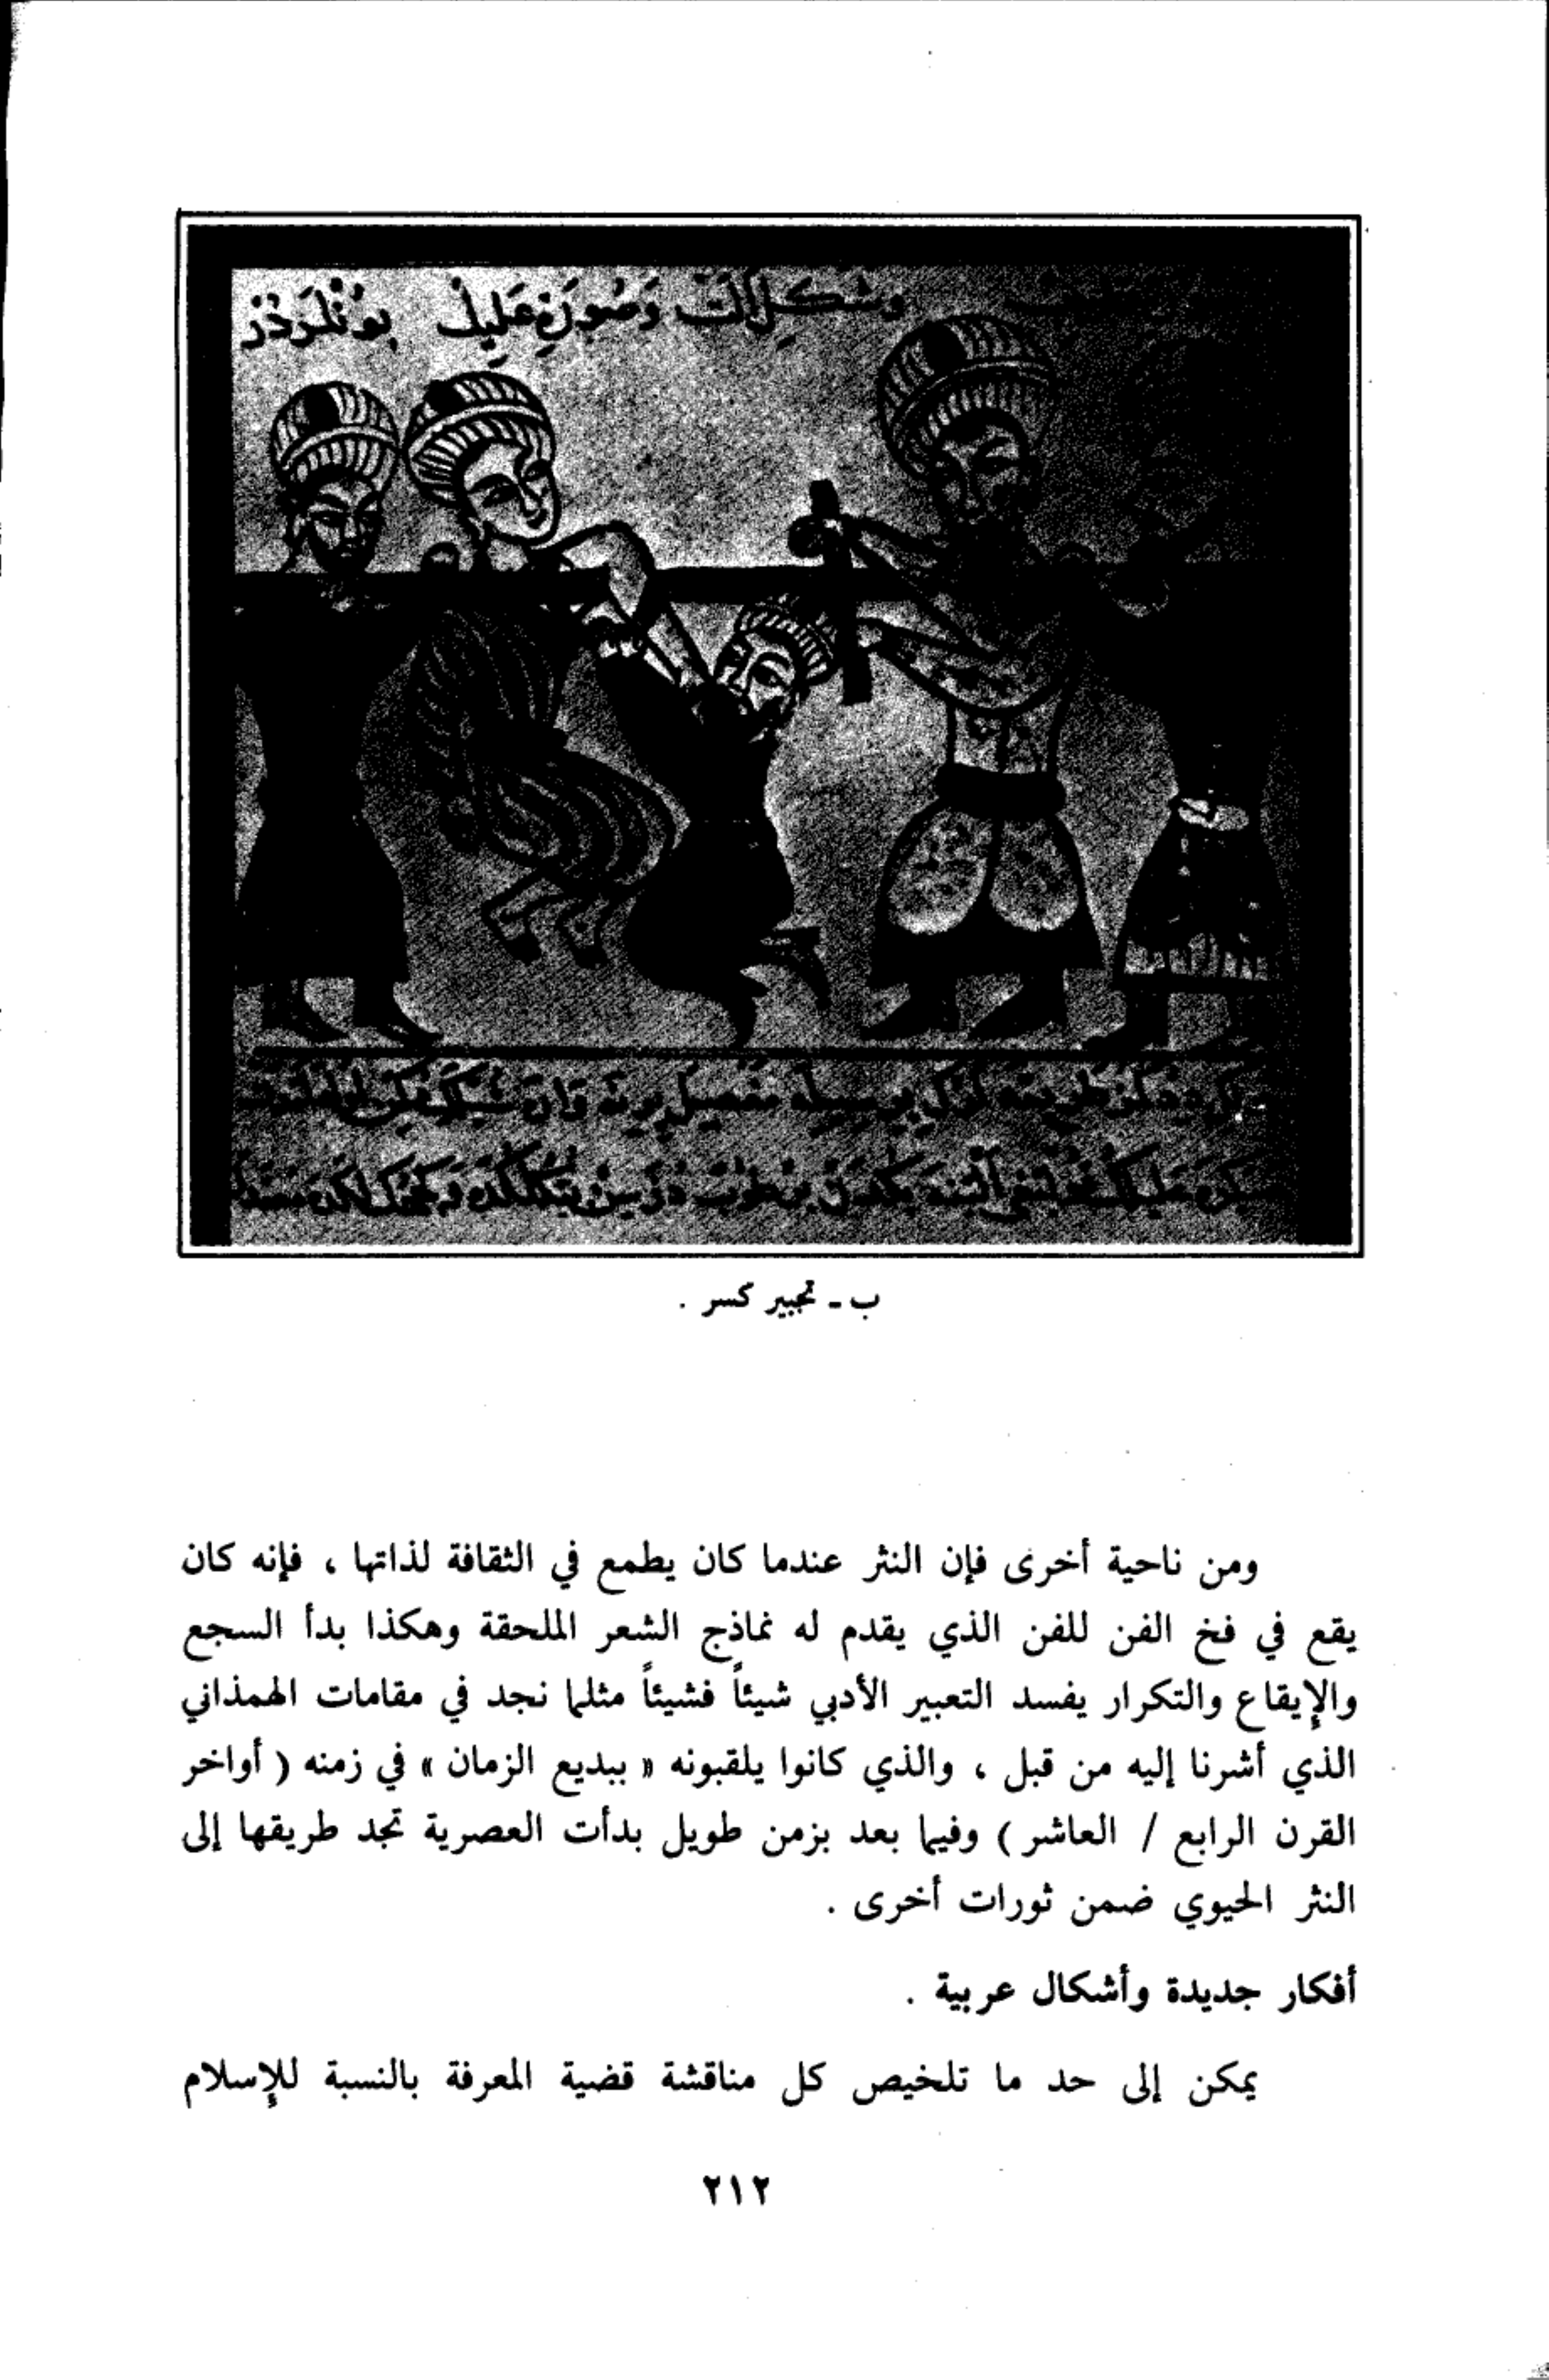 وشكل آلت وصورة عليل بونلردر
ب ـ تجبير كسر .
ومن ناحية أخرى فإن النثر عندما كان يطمع في الثقافة لذاتها ، فإنه كان
يقع في فخ الفن للفن الذي يقدم له نماذج الشعر الملحقة وهكذا بدأ السجع
والإيقاع والتكرار يفسد التعبير الأدبي شيئاً فشيئاً مثلما نجد في مقامات الهمذاني
الذي أشرنا إليه من قبل ، والذي كانوا يلقبونه « ببديع الزمان » في زمنه ( أواخر
القرن الرابع / العاشر ) وفيما بعد بزمن طويل بدأت العصرية تجد طريقها إلى
النثر الحيوي ضمن ثورات أخرى .
أفكار جديدة وأشكال عربية .
يمكن إلى حد ما تلخيص كل مناقشة قضية المعرفة بالنسبة للإسلام
٢١٢